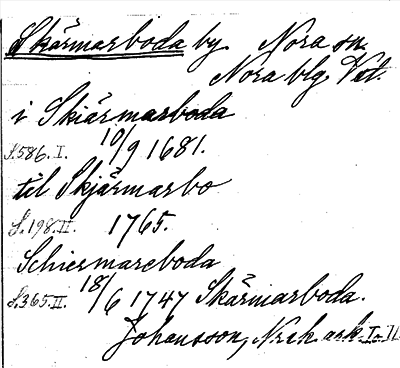 Skärmarboda by Nora sn.
Nora blg Vstl.
i Skiärmarboda
S.586.I. 10/9 1681.
til Skjärmarbo
S.198.II. 1765.
Schiermareboda
S.365.II. 18/6 1747 Skärmarboda.
Johansson, Nrsk ark. I o II